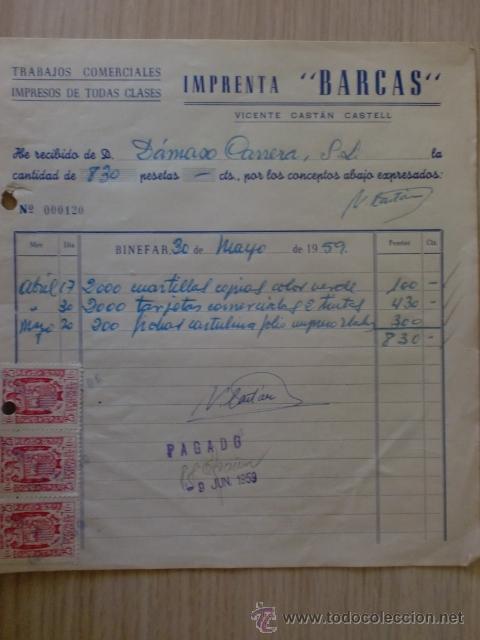 TRABAJOS COMERCIALES
IMPRESOS DE TODAS CLASES
IMPRENTA "BARCAS"
VICENTE CASTÁN CASTELL
He recibido de D. Dámaso Carrera, S.L. la
cantidad de 830 pesetas — cts., por los conceptos abajo expresados:
V. Castán
Nº 000120
Mes Día BINEFAR, 30 de Mayo de 1959. Pesetas Cts.
Abril 17 2000 cuartillas copias color verde 100 —
" 30 2000 tarjetas comerciales 2 tintas 430 —
Mayo 20 200 fichas cartulina folio impreso 2 lados 300
830 —
V. Castán
PAGADO
- 9 JUN. 1959
todocoleccion
www.todocoleccion.net